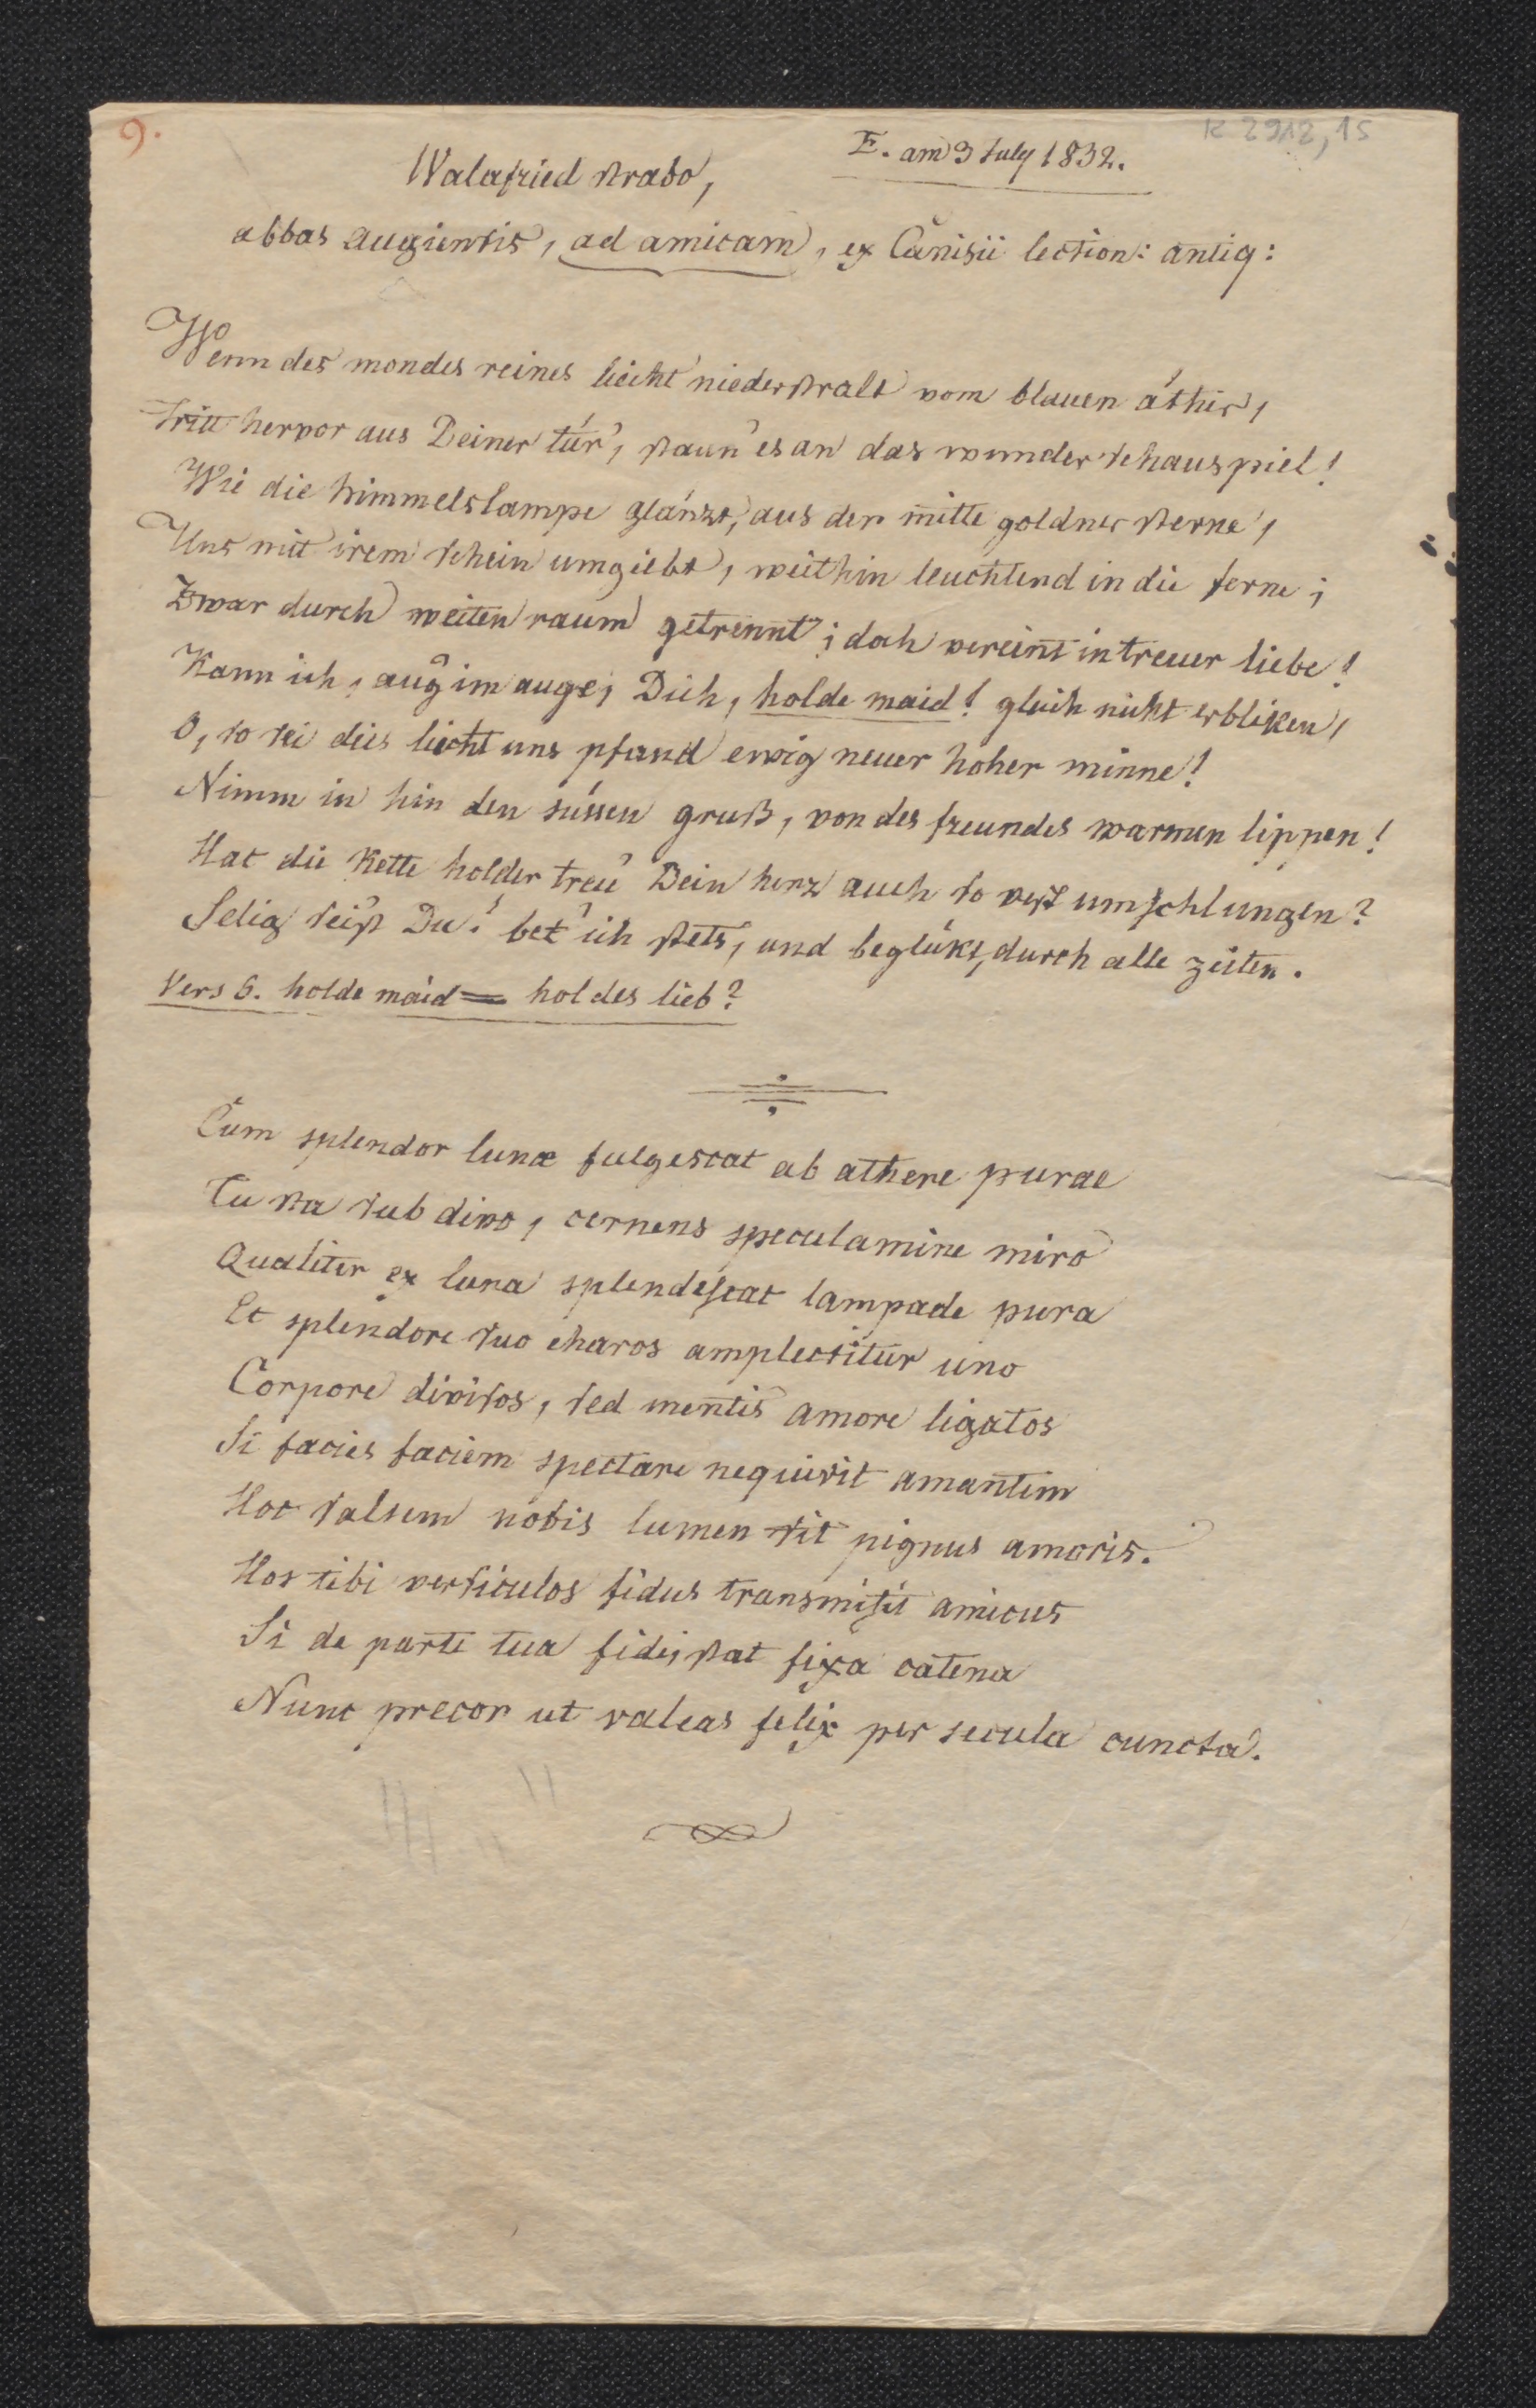 9.
K 2912,15
E. am 3 July 1832.
Walafried strabo,
abbas augiensis, ad amicam, ex Canisii lection: antiq:
Wenn des mondes reines liecht niederstralt vom blauen äther,
Tritt hervor aus Deiner tür, staun' es an das wunderschauspiel!
Wie die himmelslampe glänzt, aus der mitte goldner sterne,
Uns mit irem schein umgiebt, weithin leuchtend in die ferne;
Zwar durch weiten raum getrennt; doch vereint in treuer liebe!
Kann ich, aug' im auge, Dich, holde maid! gleich nicht erbliken,
O, so sei dies liecht uns pfand ewig neuer hoher minne!
Nimm in hin den süssen gruß, von des freundes warmen lippen!
Hat die kette holder treu' Dein herz auch so vest umschlungen?
Selig seist Du! bet' ich stets, und beglükt, durch alle zeiten.
Vers 6. holde maid = holdes lieb?
Cum splendor lunæ fulgescat ab athere purae
Tu sta sub divo, cernens speculamine miro
Qualiter ex luna splendescat lampade pura
Et splendore suo charos amplectitur uno
Corpore divisos, sed mentis amore ligatos
Si facies faciem spectare nequivit amantem
Hoc saltem nobis lumen sit pignus amoris.
Hos tibi versiculos fidus transmisit amicus
Si de parte tua fidei stat fixa catena
Nunc precor ut valeas felix per secula cuncta.